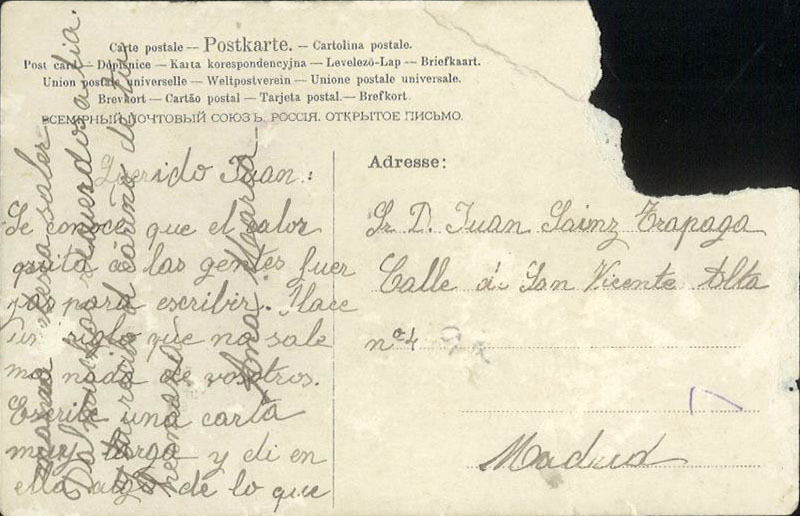 Carte postale — Postkarte. — Cartolina postale.
Post card — Dopisnice — Karta korespondencyjna — Levelező-Lap — Briefkaart.
Union postale universelle — Weltpostverein — Unione postale universale.
Brevkort — Cartão postal — Tarjeta postal. — Brefkort
ВСЕМІРНЫЙ ПОЧТОВЫЙ СОЮЗЪ. РОССІЯ. ОТКРЫТОЕ ПИСЬМО.
Querido Juan:
Se conoce que el calor
quita á las gentes fuer
zas para escribir. Hace
un siglo que no sale
mo nada de vosotros.
Escribe una carta
muy larga y di en
ella algo de lo que
desea saber
Da muchos recuerdos a tia.
recibe el cariño de tu
hermana
Ana Maria
Adresse:
Sr. D. Juan Sainz Trapaga
Calle de San Vicente Alta
nº 4
Madrid